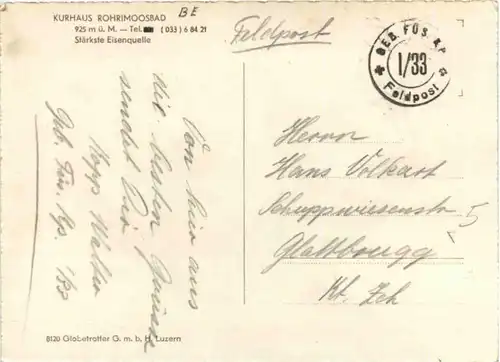 KURHAUS ROHRIMOOSBAD
925 m ü. M. — Tel. (033) 6 84 21
Stärkste Eisenquelle
BE
Feldpost
GEB. FÜS. KP.
I/33
Feldpost
Von hier aus
die besten Grüsse
sendet Dir
Kopp Walter
Geb. Füs. Kp. I/33
Herrn
Hans Volkart
Schuppwiesenstr 5
Glattbrugg
Kt. Zch
8120 Globetrotter G. m. b. H. Luzern